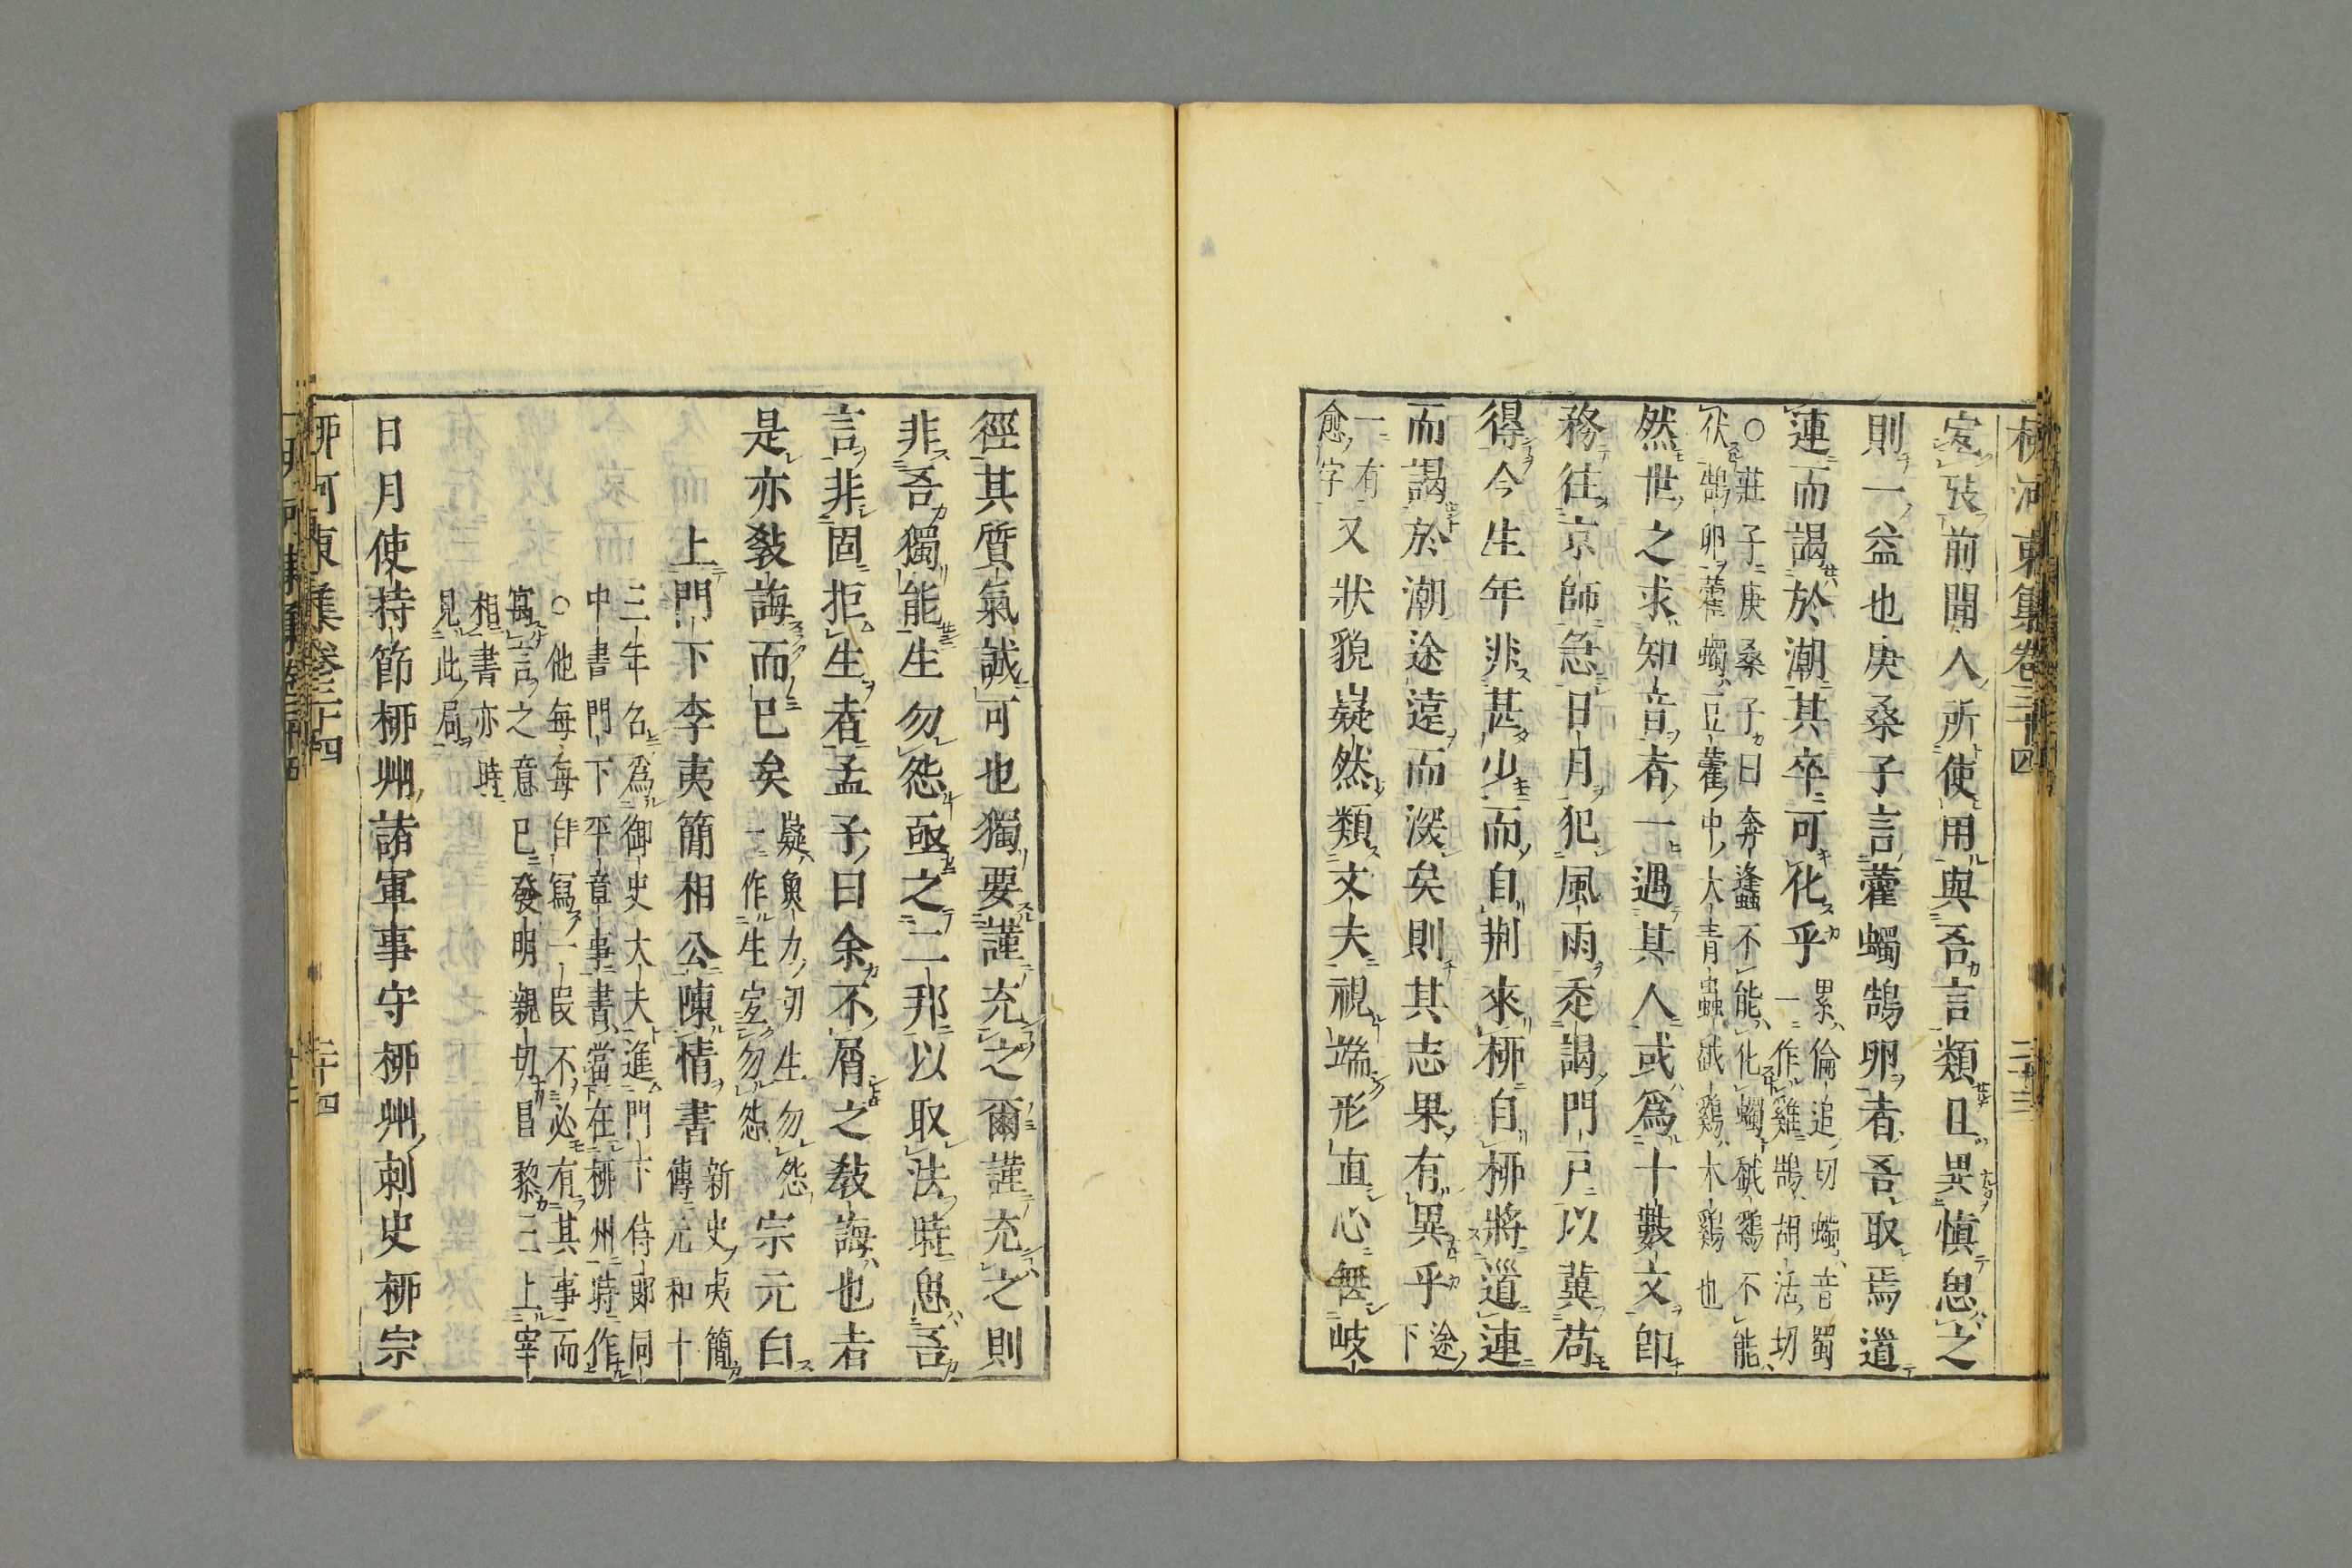 柳河東集卷三十四
二十三
定㢤前聞人所使用與吾言類且異愼思之
則一益也庚桑子言藿蠋鵠卵者吾取焉道
連而謁於潮其卒可化乎
累倫追切蠋音蜀
一作雞鵠胡活切
○莊子庚桑子曰奔蜂不能化蠋越鷄不能
伏鵠卵藿蠋豆藿中大靑蟲越鷄木鷄也
然世之求知音者一遇其人或爲十數文卽
務往京師急日月犯風雨走謁門戶以冀苟
得今生年非甚少而自荆來柳自柳將道連
而謁於潮途遠而深矣則其志果有異乎
途下
一有愈字
又狀貌嶷然類丈夫視端形直心無歧
徑其質氣誠可也獨要謹充之爾謹充之則
非吾獨能生勿怨亟之二邦以取法時思吾
言非固拒生者孟子曰余不屑之敎誨也者
是亦敎誨而已矣
嶷魚力切生勿怨
一作生定勿怨
宗元白
上門下李夷簡相公陳情書
新史夷簡
傳元和十
三年召爲御史大夫進門下侍郞同
中書門下平章事書當在柳州時作
○他每每自寫一段不必有其事而
寓言之意已發明親切昌黎三上宰
相書亦時
見此局
日月使持節柳州諸軍事守柳州刺史柳宗
柳河東集卷三十四
二十四